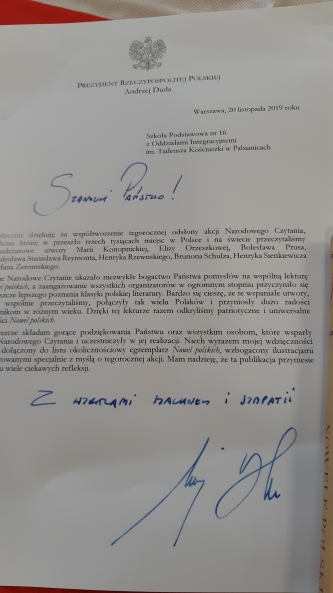 PREZYDENT RZECZYPOSPOLITEJ POLSKIEJ
Andrzej Duda
Warszawa, 20 listopada 2019 roku
Szkoła Podstawowa nr 16
z Oddziałami Integracyjnymi
im. Tadeusza Kościuszki w Pabianicach
Szanowni Państwo!
dziękuję za współtworzenie tegorocznej odsłony akcji Narodowego Czytania,
której w przeszło trzech tysiącach miejsc w Polsce i na świecie przeczytaliśmy
utwory Marii Konopnickiej, Elizy Orzeszkowej, Bolesława Prusa,
Stanisława Reymonta, Henryka Rzewuskiego, Brunona Schulza, Henryka Sienkiewicza
Żeromskiego.
Narodowe Czytanie ukazało niezwykłe bogactwo Państwa pomysłów na wspólną lekturę
polskich, a zaangażowanie wszystkich organizatorów w ogromnym stopniu przyczyniło się
lepszego poznania klasyki polskiej literatury. Bardzo się cieszę, że te wspaniałe utwory,
wspólnie przeczytaliśmy, połączyły tak wielu Polaków i przyniosły dużo radości
w różnym wieku. Dzięki tej lekturze razem odkryliśmy patriotyczne i uniwersalne
Nowel polskich.
składam gorące podziękowania Państwu oraz wszystkim osobom, które wsparły
Narodowego Czytania i uczestniczyły w jej realizacji. Niech wyrazem mojej wdzięczności
dołączony do listu okolicznościowy egzemplarz Nowel polskich, wzbogacony ilustracjami
specjalnie z myślą o tegorocznej akcji. Mam nadzieję, że ta publikacja przyniesie
wiele ciekawych refleksji.
Z wyrazami szacunku i sympatii